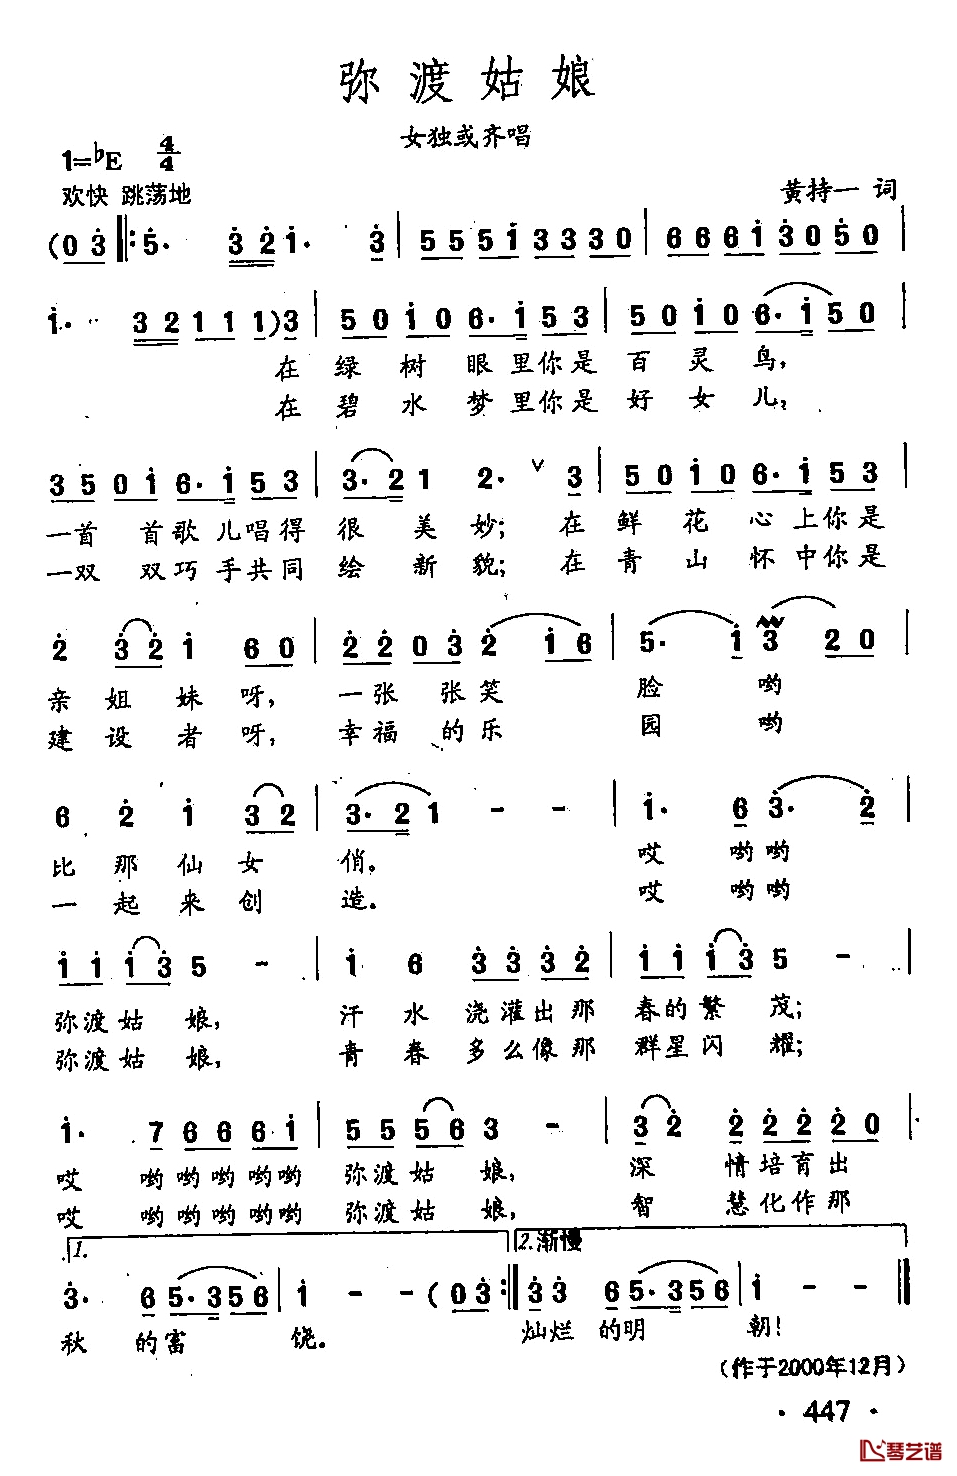 弥渡姑娘
女独或齐唱
1=♭E 4/4
欢快 跳荡地
黄持一 词
(03 5· 321· 3 55513330 66613050
1· 321111)3 50106·153 50106·150
在绿树眼里你是百灵鸟,
在碧水梦里你是好女儿,
35016·153 3·212· ∨ 3 50106·153
一首首歌儿唱得很美妙;在鲜花心上你是
一双双巧手共同绘新貌;在青山怀中你是
232160 2203216 5·1320
亲姐妹呀,一张张笑脸哟
建设者呀,幸福的乐园哟
62132 3·21-- 1·63·2
比那仙女俏。哎哟哟
一起来创造。哎哟哟
11135- 163332 11135-
弥渡姑娘,汗水浇灌出那春的繁茂;
弥渡姑娘,青春多么像那群星闪耀;
1·76661 55563- 3222220
哎哟哟哟哟弥渡姑娘,深情培育出
哎哟哟哟哟弥渡姑娘,智慧化作那
1. 2.渐慢
3·65·356 1--(03 3365·356 1--
秋的富饶。灿烂的明朝!
(作于2000年12月)
· 447 ·
琴艺谱